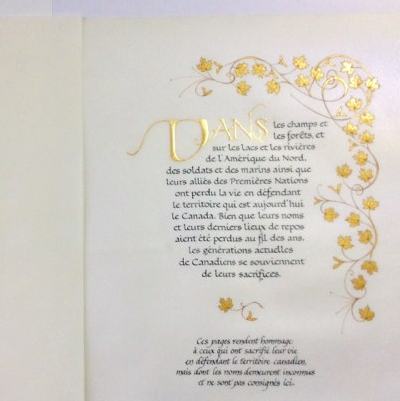 DANS les champs et
les forêts, et
sur les lacs et les rivières
de l'Amérique du Nord,
des soldats et des marins ainsi que
leurs alliés des Premières Nations
ont perdu la vie en défendant
le territoire qui est aujourd'hui
le Canada. Bien que leurs noms
et leurs derniers lieux de repos
aient été perdus au fil des ans,
les générations actuelles
de Canadiens se souviennent
de leurs sacrifices.
Ces pages rendent hommage
à ceux qui ont sacrifié leur vie
en défendant le territoire canadien,
mais dont les noms demeurent inconnus
et ne sont pas consignés ici.